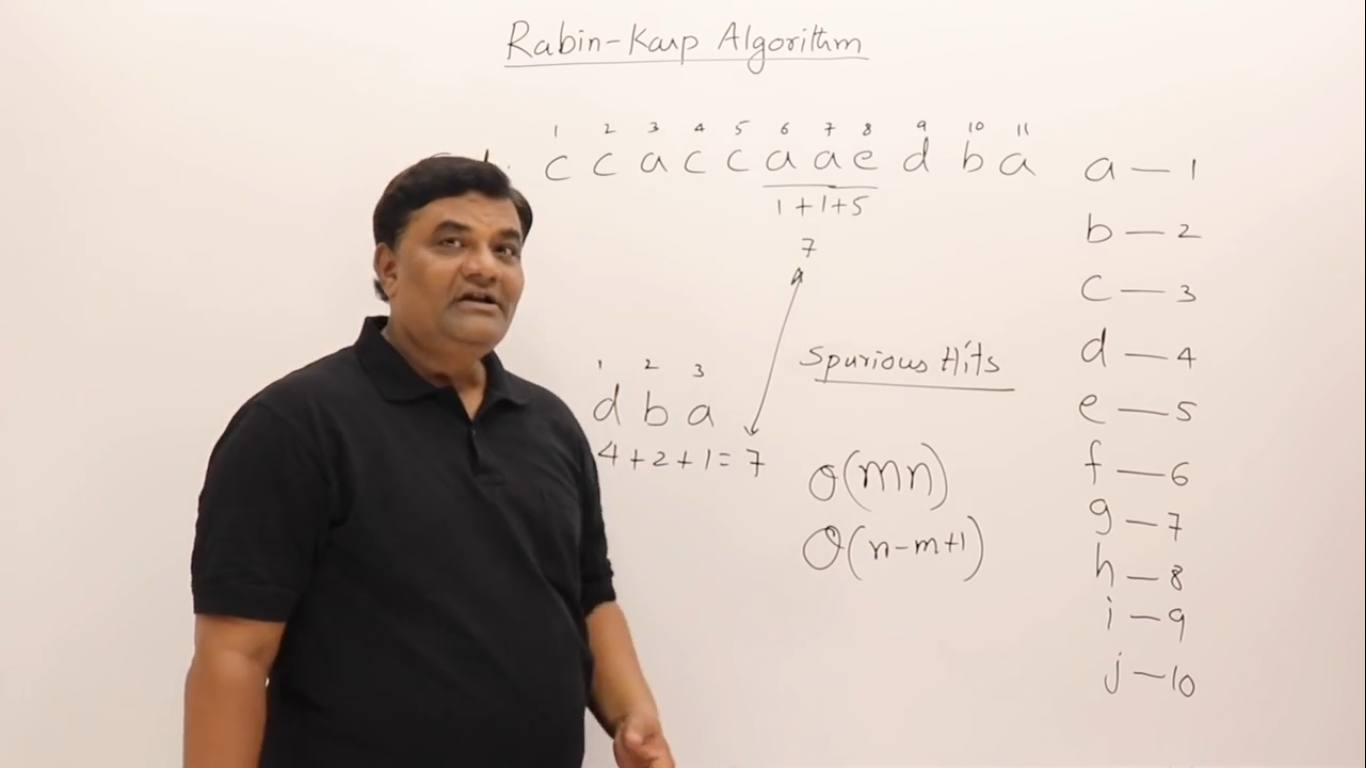 Rabin-Karp Algorithm
1 2 3 4 5 6 7 8 9 10 11
c c a c c a a e d b a
1+1+5
7
1 2 3
d b a
4+2+1=7
Spurious Hits
O(mn)
O(n-m+1)
a — 1
b — 2
c — 3
d — 4
e — 5
f — 6
g — 7
h — 8
i — 9
j — 10